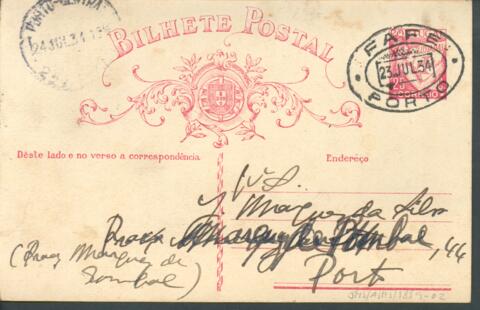 PORTO CENTRAL
24 JUL. 34
BILHETE POSTAL
FAFE
23. JUL. 34
PORTO
25
Dêste lado e no verso a correspondência
Endereço
Marques da Silva
Praça Marquez de Pombal, 44
(Praça Marquez de
Pombal)
Porto